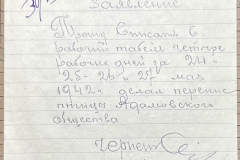 Заявление
Прошу списать в
рабочий табель четыре
рабочие дней за 24-
25-26 и 27 мая
1942г. делал перепис
пница Адамовского
общества
Чернет